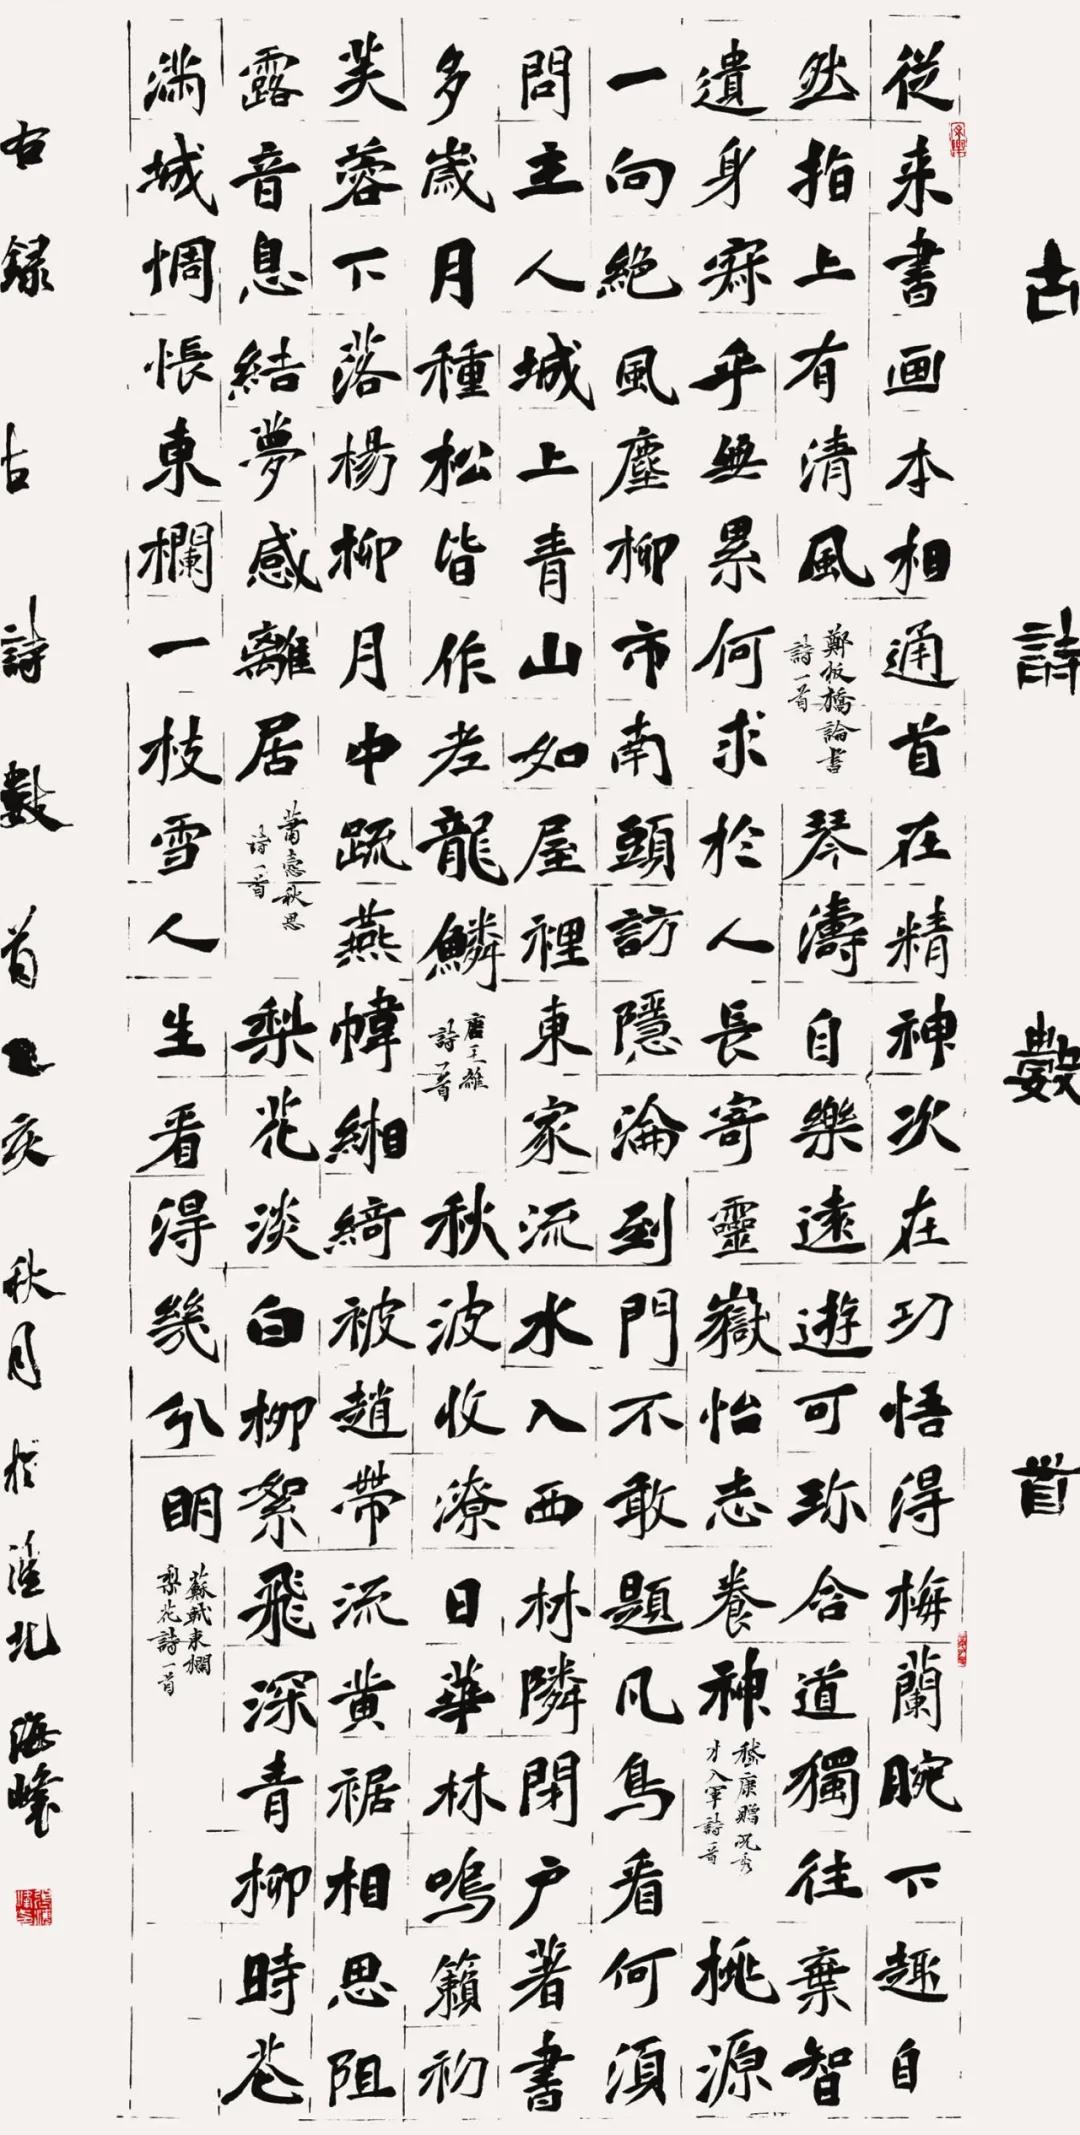 古詩數首
從来書画本相通首在精神次在功悟得梅蘭腕下趣自
然指上有清風
鄭板橋論書
詩一首
琴濤自樂遠遊可珎含道獨往棄智
遺身寂乎無累何求於人長寄靈嶽怡志養神
嵇康贈兄秀
才入軍詩一首
桃源
一向絕風塵柳市南頭訪隱淪到門不敢題凡鳥看何須
問主人城上青山如屋裡東家流水入西林隣閉户著書
多歲月種松皆作老龍鱗
唐王維
詩一首
秋波收潦日華林鳴籟初
芙蓉下落楊柳月中疏燕幃緗綺被趙帶流黄裾相思阻
露音息結夢感離居
蕭慤秋思
詩一首
梨花淡白柳絮飛深青柳時花
滿城惆悵東欄一枝雪人生看得幾分明
蘇軾東欄
梨花詩一首
右録古詩數首乙亥秋月於北海峰